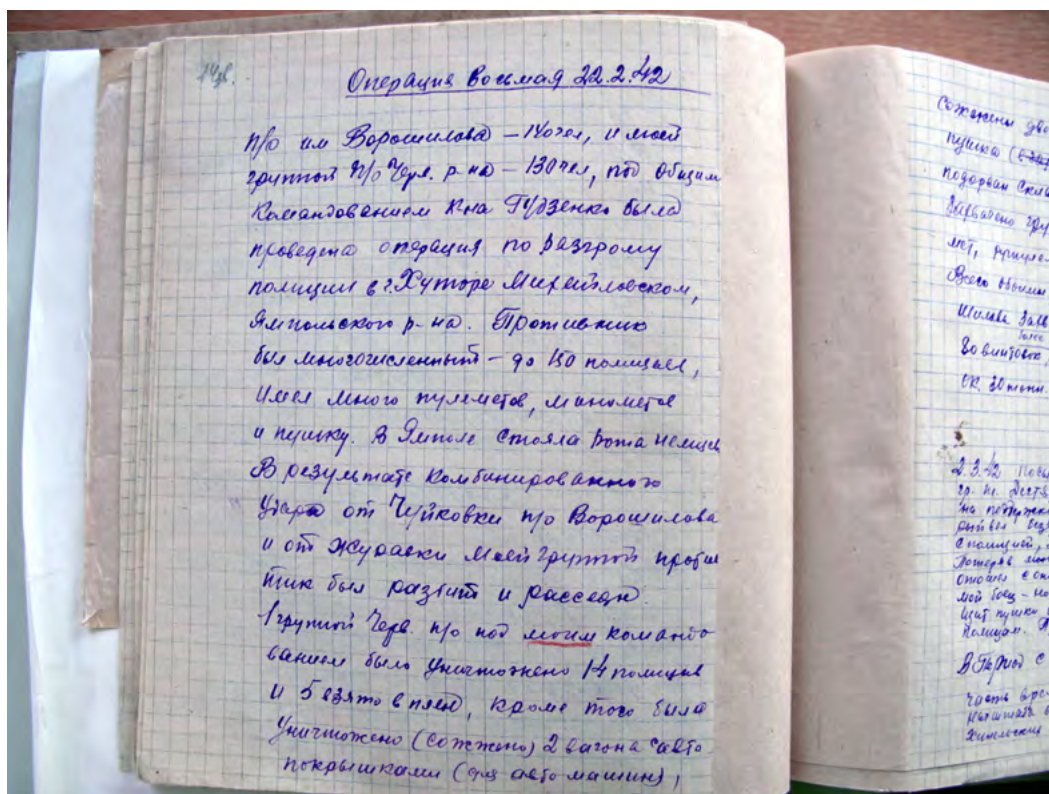 Операция восьмая 22.2.42
п/о им Ворошилова – 140 чел, и моей
группой п/о Черв. р-на – 130 чел, под общим
командованием к-на Гудзенко была
проведена операция по разгрому
полиции в г. Хуторе Михайловском,
Ямпольского р-на. Противник
был многочисленный – до 150 полицаев,
имел много пулеметов, минометов
и пушку. В Ямполе стояла рота немцев
В результате комбинированного
удара от Чуйковки п/о Ворошилова
и от Журавки моей группой против
ник был разбит и рассеян.
группой Черв. п/о под моим командо
ванием было уничтожено 14 полицаев
и 5 взято в плен, кроме того было
уничтожено (сожжено) 2 вагона с авто
покрышками (для автомашин),
сожжены
пушка
подорван
Захвачено
Всего обоими
более
80 винтовок,
ок. 30
2.3.42
гр.
на
с полицией,
Потеряв
мой боец –
пушку
полицаи.
В период с
часть